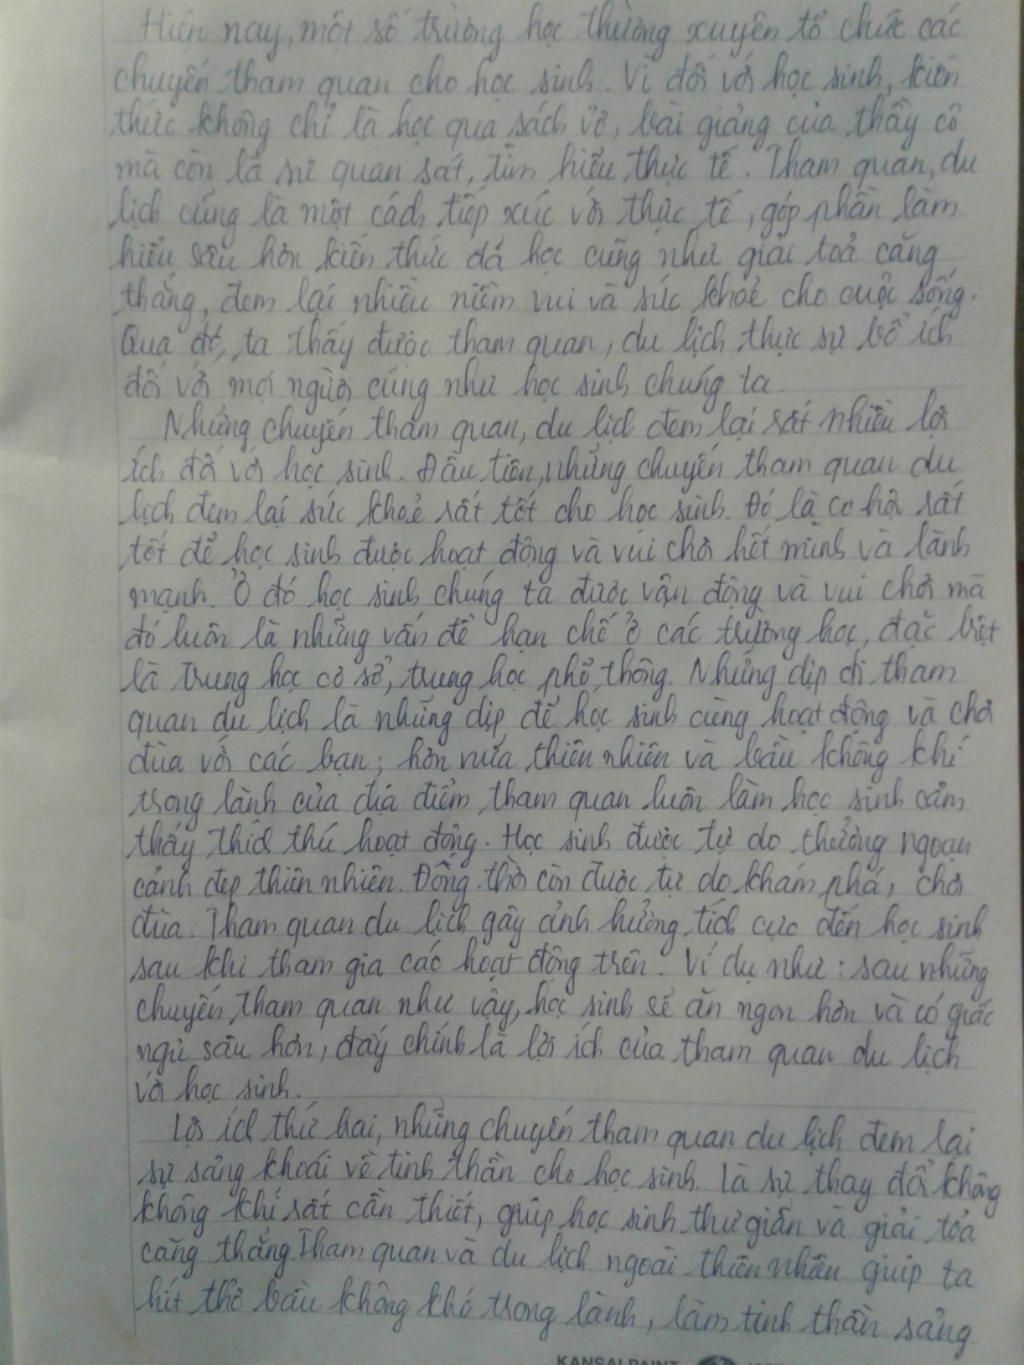 Hiện nay, một số trường học thường xuyên tổ chức các
chuyến tham quan cho học sinh. Vì đối với học sinh, kiến
thức không chỉ là học qua sách vở, bài giảng của thầy cô
mà còn là sự quan sát, tìm hiểu thực tế. Tham quan, du
lịch cũng là một cách tiếp xúc với thực tế, góp phần làm
hiểu sâu hơn kiến thức đã học cũng như giải toả căng
thẳng, đem lại nhiều niềm vui và sức khoẻ cho cuộc sống.
Qua đó, ta thấy được tham quan, du lịch thực sự bổ ích
đối với mọi người cũng như học sinh chúng ta.
Những chuyến tham quan, du lịch đem lại rất nhiều lợi
ích đối với học sinh. Đầu tiên, những chuyến tham quan du
lịch đem lại sức khoẻ rất tốt cho học sinh. Đó là cơ hội rất
tốt để học sinh được hoạt động và vui chơi hết mình và lành
mạnh. Ở đó học sinh chúng ta được vận động và vui chơi mà
đó luôn là những vấn đề hạn chế ở các trường học, đặc biệt
là trung học cơ sở, trung học phổ thông. Những dịp đi tham
quan du lịch là những dịp để học sinh cùng hoạt động và chơi
đùa với các bạn; hơn nữa thiên nhiên và bầu không khí
trong lành của địa điểm tham quan luôn làm học sinh cảm
thấy thích thú hoạt động. Học sinh được tự do thưởng ngoạn
cảnh đẹp thiên nhiên. Đồng thời còn được tự do khám phá, chơi
đùa. Tham quan du lịch gây ảnh hưởng tích cực đến học sinh
sau khi tham gia các hoạt động trên. Ví dụ như: sau những
chuyến tham quan như vậy, học sinh sẽ ăn ngon hơn và có giấc
ngủ sâu hơn, đấy chính là lợi ích của tham quan du lịch
với học sinh.
Lợi ích thứ hai, những chuyến tham quan du lịch đem lại
sự sảng khoái về tinh thần cho học sinh. Là sự thay đổi không
không khí rất cần thiết, giúp học sinh thư giãn và giải tỏa
căng thẳng. Tham quan và du lịch ngoài thiên nhiên giúp ta
hít thở bầu không khó trong lành, làm tinh thần sảng
KANSAI PAINT